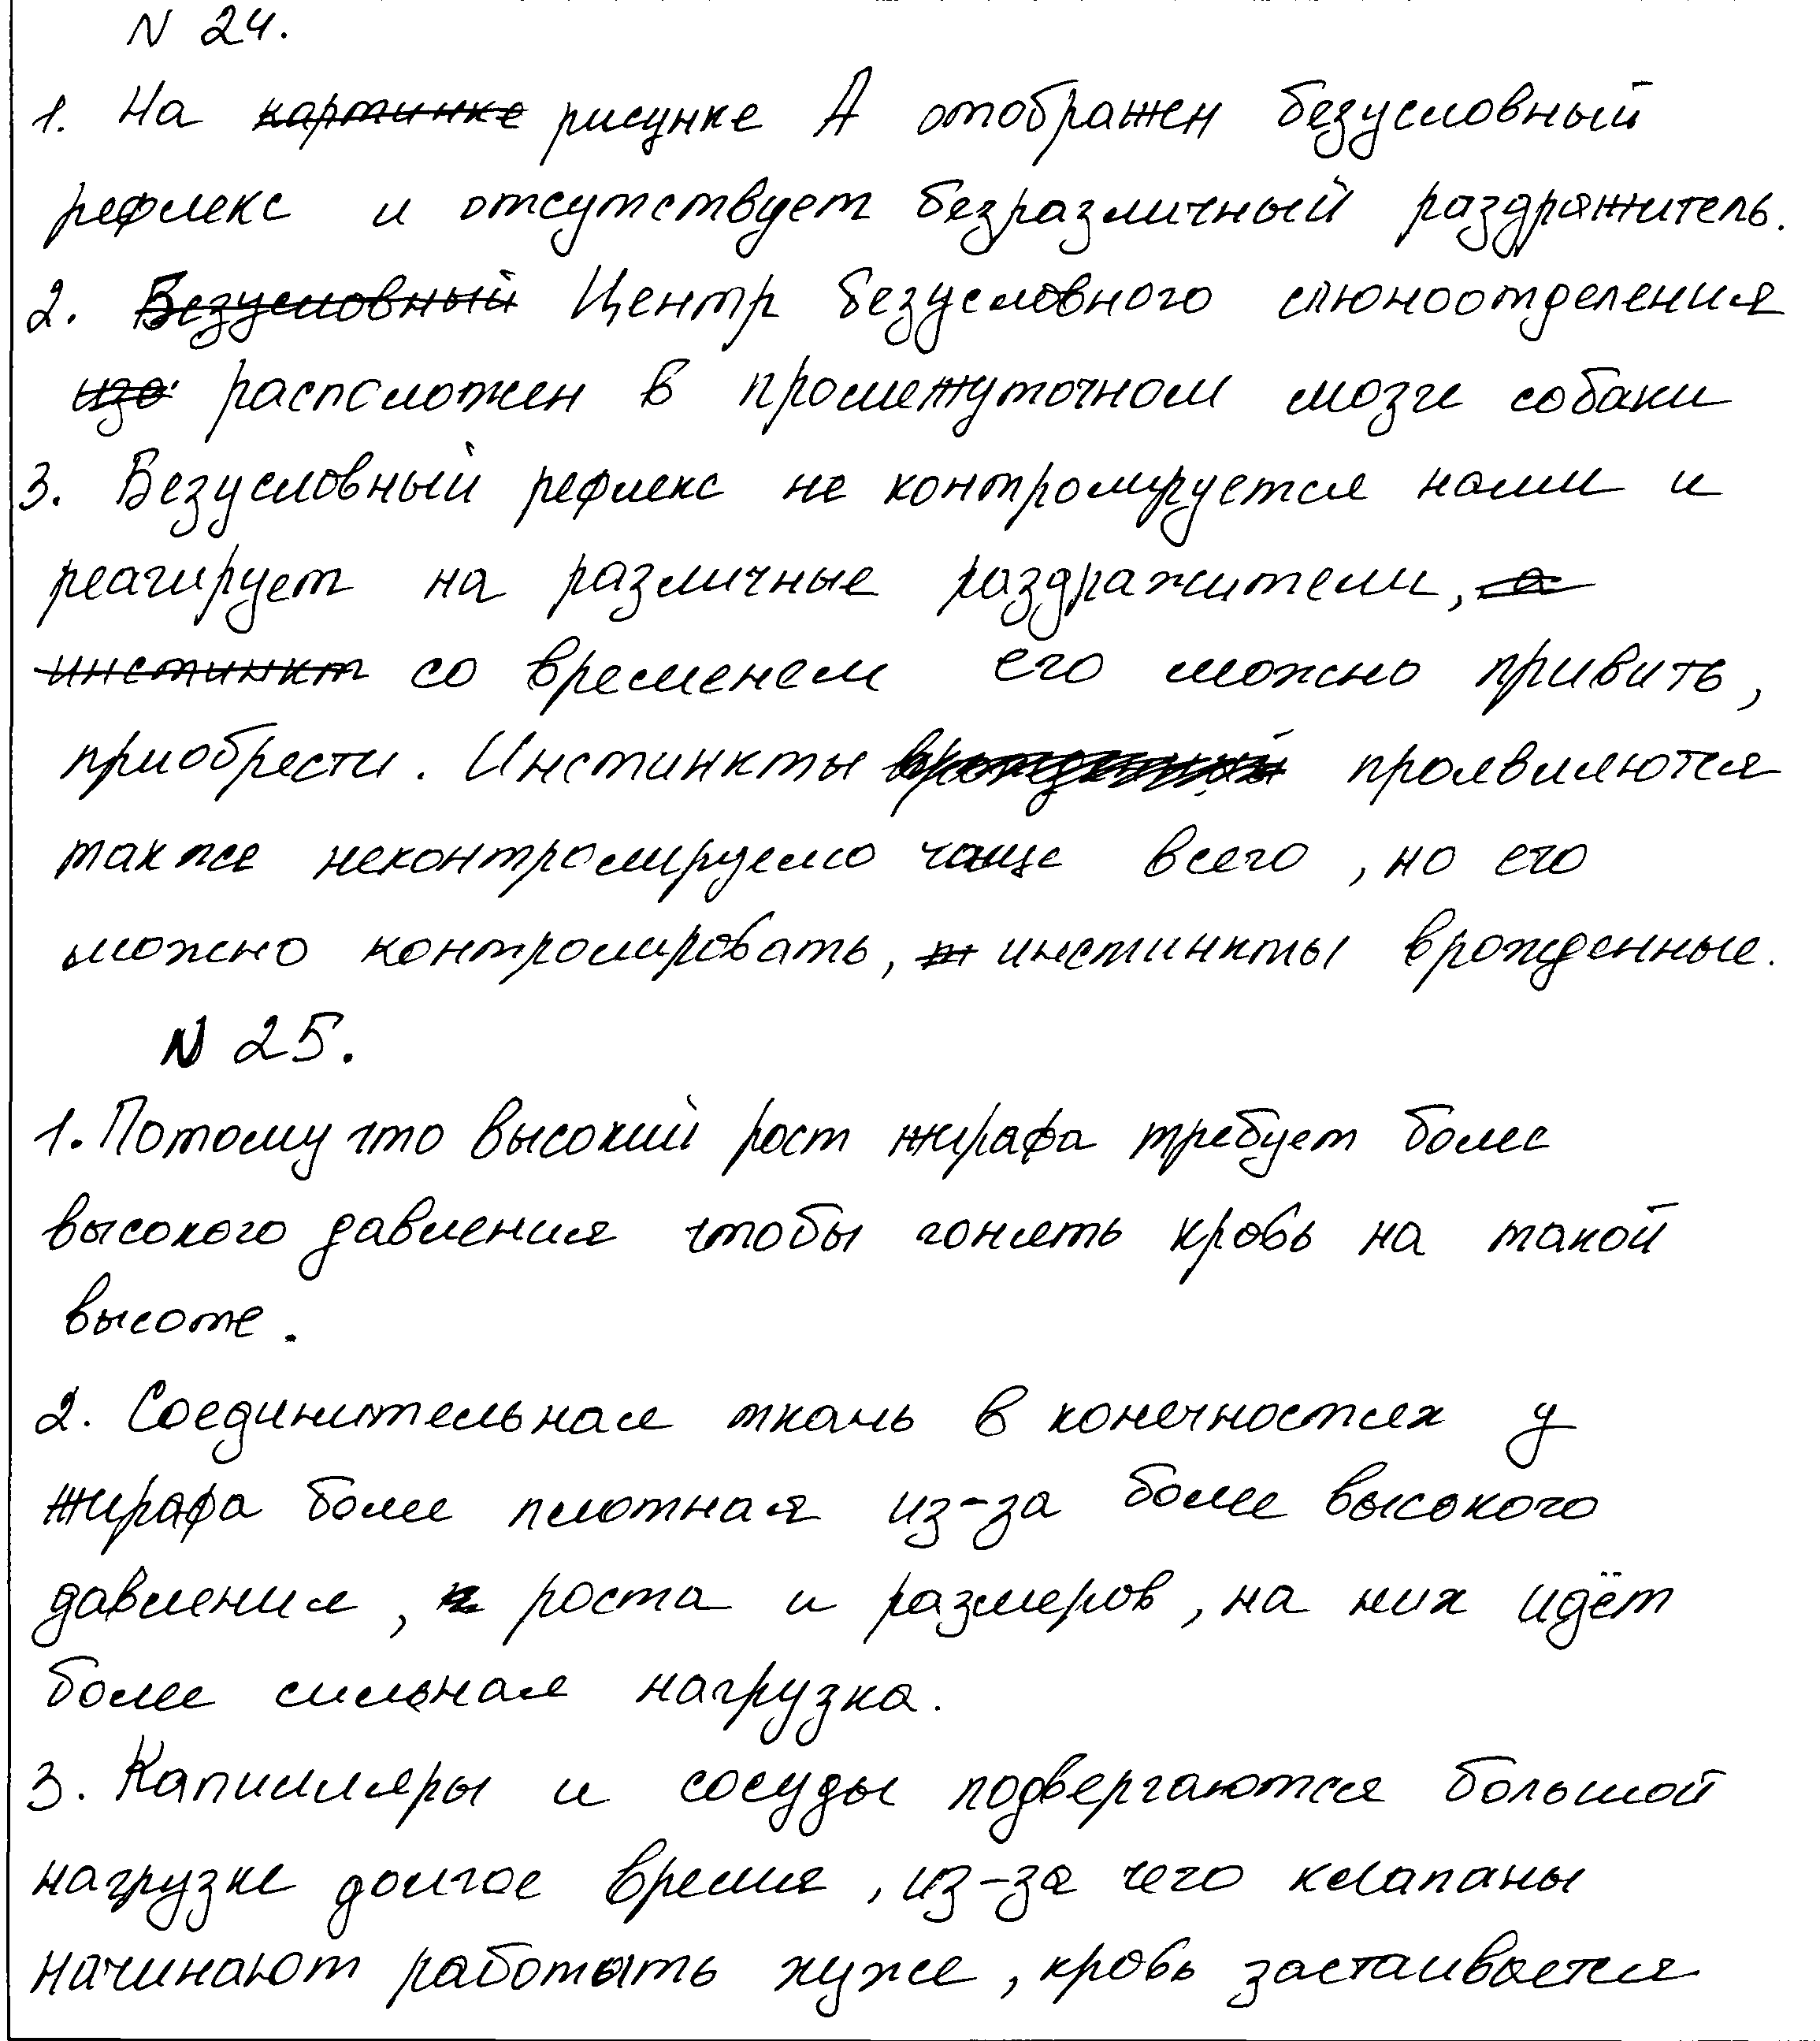 N 24.
1. На картинке рисунке А отображен безусловный
рефлекс и отсутствует безразличный раздражитель.
2. Безусловный Центр безусловного слюноотделения
расположен в промежуточном мозге собаки
3. Безусловный рефлекс не контролируется нами и
реагирует на различные раздражители, а
инстинкт со временем его можно привить,
приобрести. Инстинкты врожденный проявляются
также неконтролируемо чаще всего, но его
можно контролировать, инстинкты врожденные.
N 25.
1. Потому что высокий рост жирафа требует более
высокого давления чтобы гонять кровь на такой
высоте.
2. Соединительная ткань в конечностях у
жирафа более плотная из-за более высокого
давления, роста и размеров, на них идёт
более сильная нагрузка.
3. Капилляры и сосуды подвергаются большой
нагрузке долгое время, из-за чего клапаны
начинают работать хуже, кровь застаивается